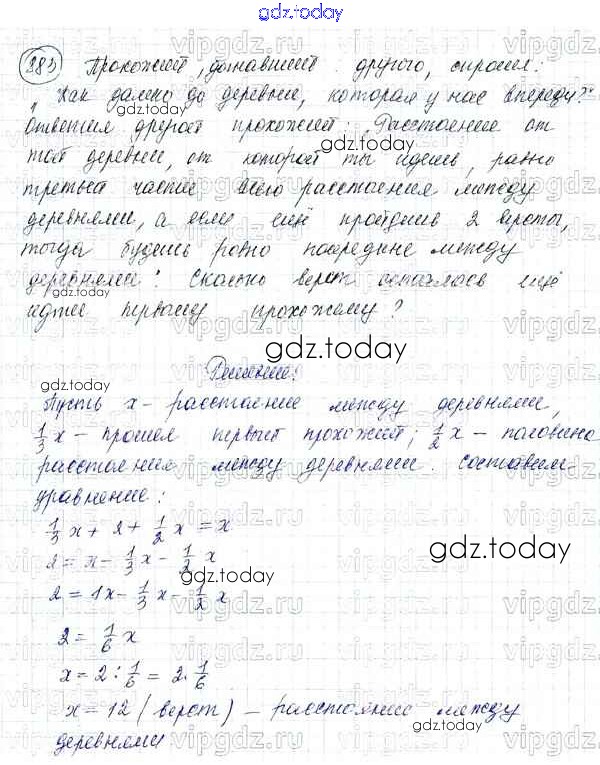 gdz.today
383 Прохожий, догнавший другого, спросил:
„Как далеко до деревни, которая у нас впереди?"
gdz.today
Ответил другой прохожий: „Расстояние от
gdz.today
той деревни, от которой ты идешь, равно
третьей части всего расстояния между
деревнями, а если ещё пройдешь 2 версты,
тогда будешь ровно посредине между
деревнями". Сколько верст осталось ещё
gdz.today
идти первому прохожему?
gdz.today
Решение:
gdz.today
Пусть x - расстояние между деревнями,
1/3 x - прошел первый прохожий; 1/2 x - половина
расстояния между деревнями. Составим
уравнение:
1/3 x + 2 + 1/2 x = x
gdz.today
2 = x - 1/3 x - 1/2 x
gdz.today
2 = 1x - 1/3 x - 1/2 x
2 = 1/6 x
gdz.today
x = 2 : 1/6 = 2 · 1/6
x = 12 (верст) - расстояние между
деревнями
gdz.today
vipgdz.ru